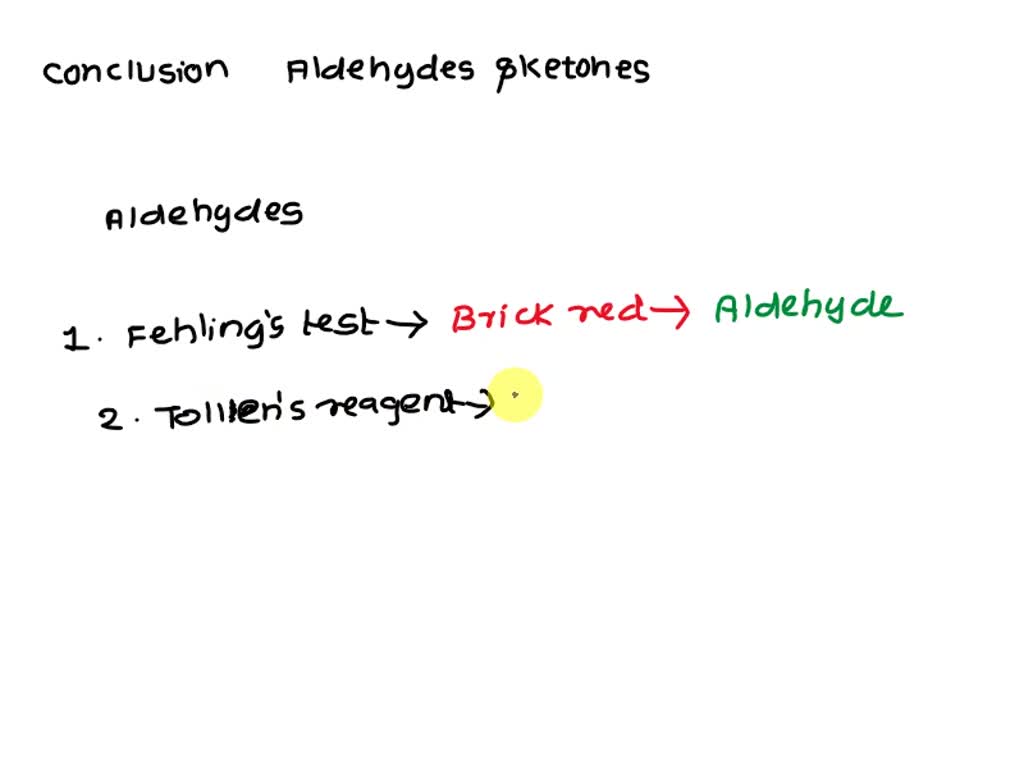 Conclusion Aldehydes & ketones
Aldehydes
1. Fehling's test → Brick red → Aldehyde
2. Tolllen's reagent →